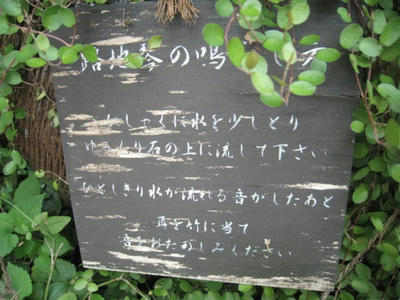 地琴の鳴
しゃくに水を少しとり
ゆっくり石の上に流して下さい
ひとしきり水が流れる音がしたあと
耳を竹に当て
音をおたのしみください